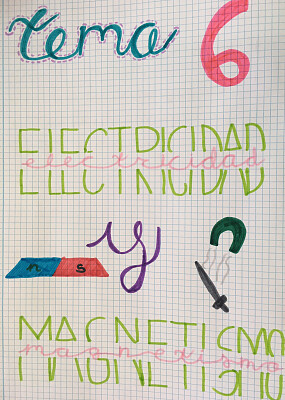 Tema 6
ELECTRICIDAD
electricidad
y
n s
MAGNETISMO
magnetismo